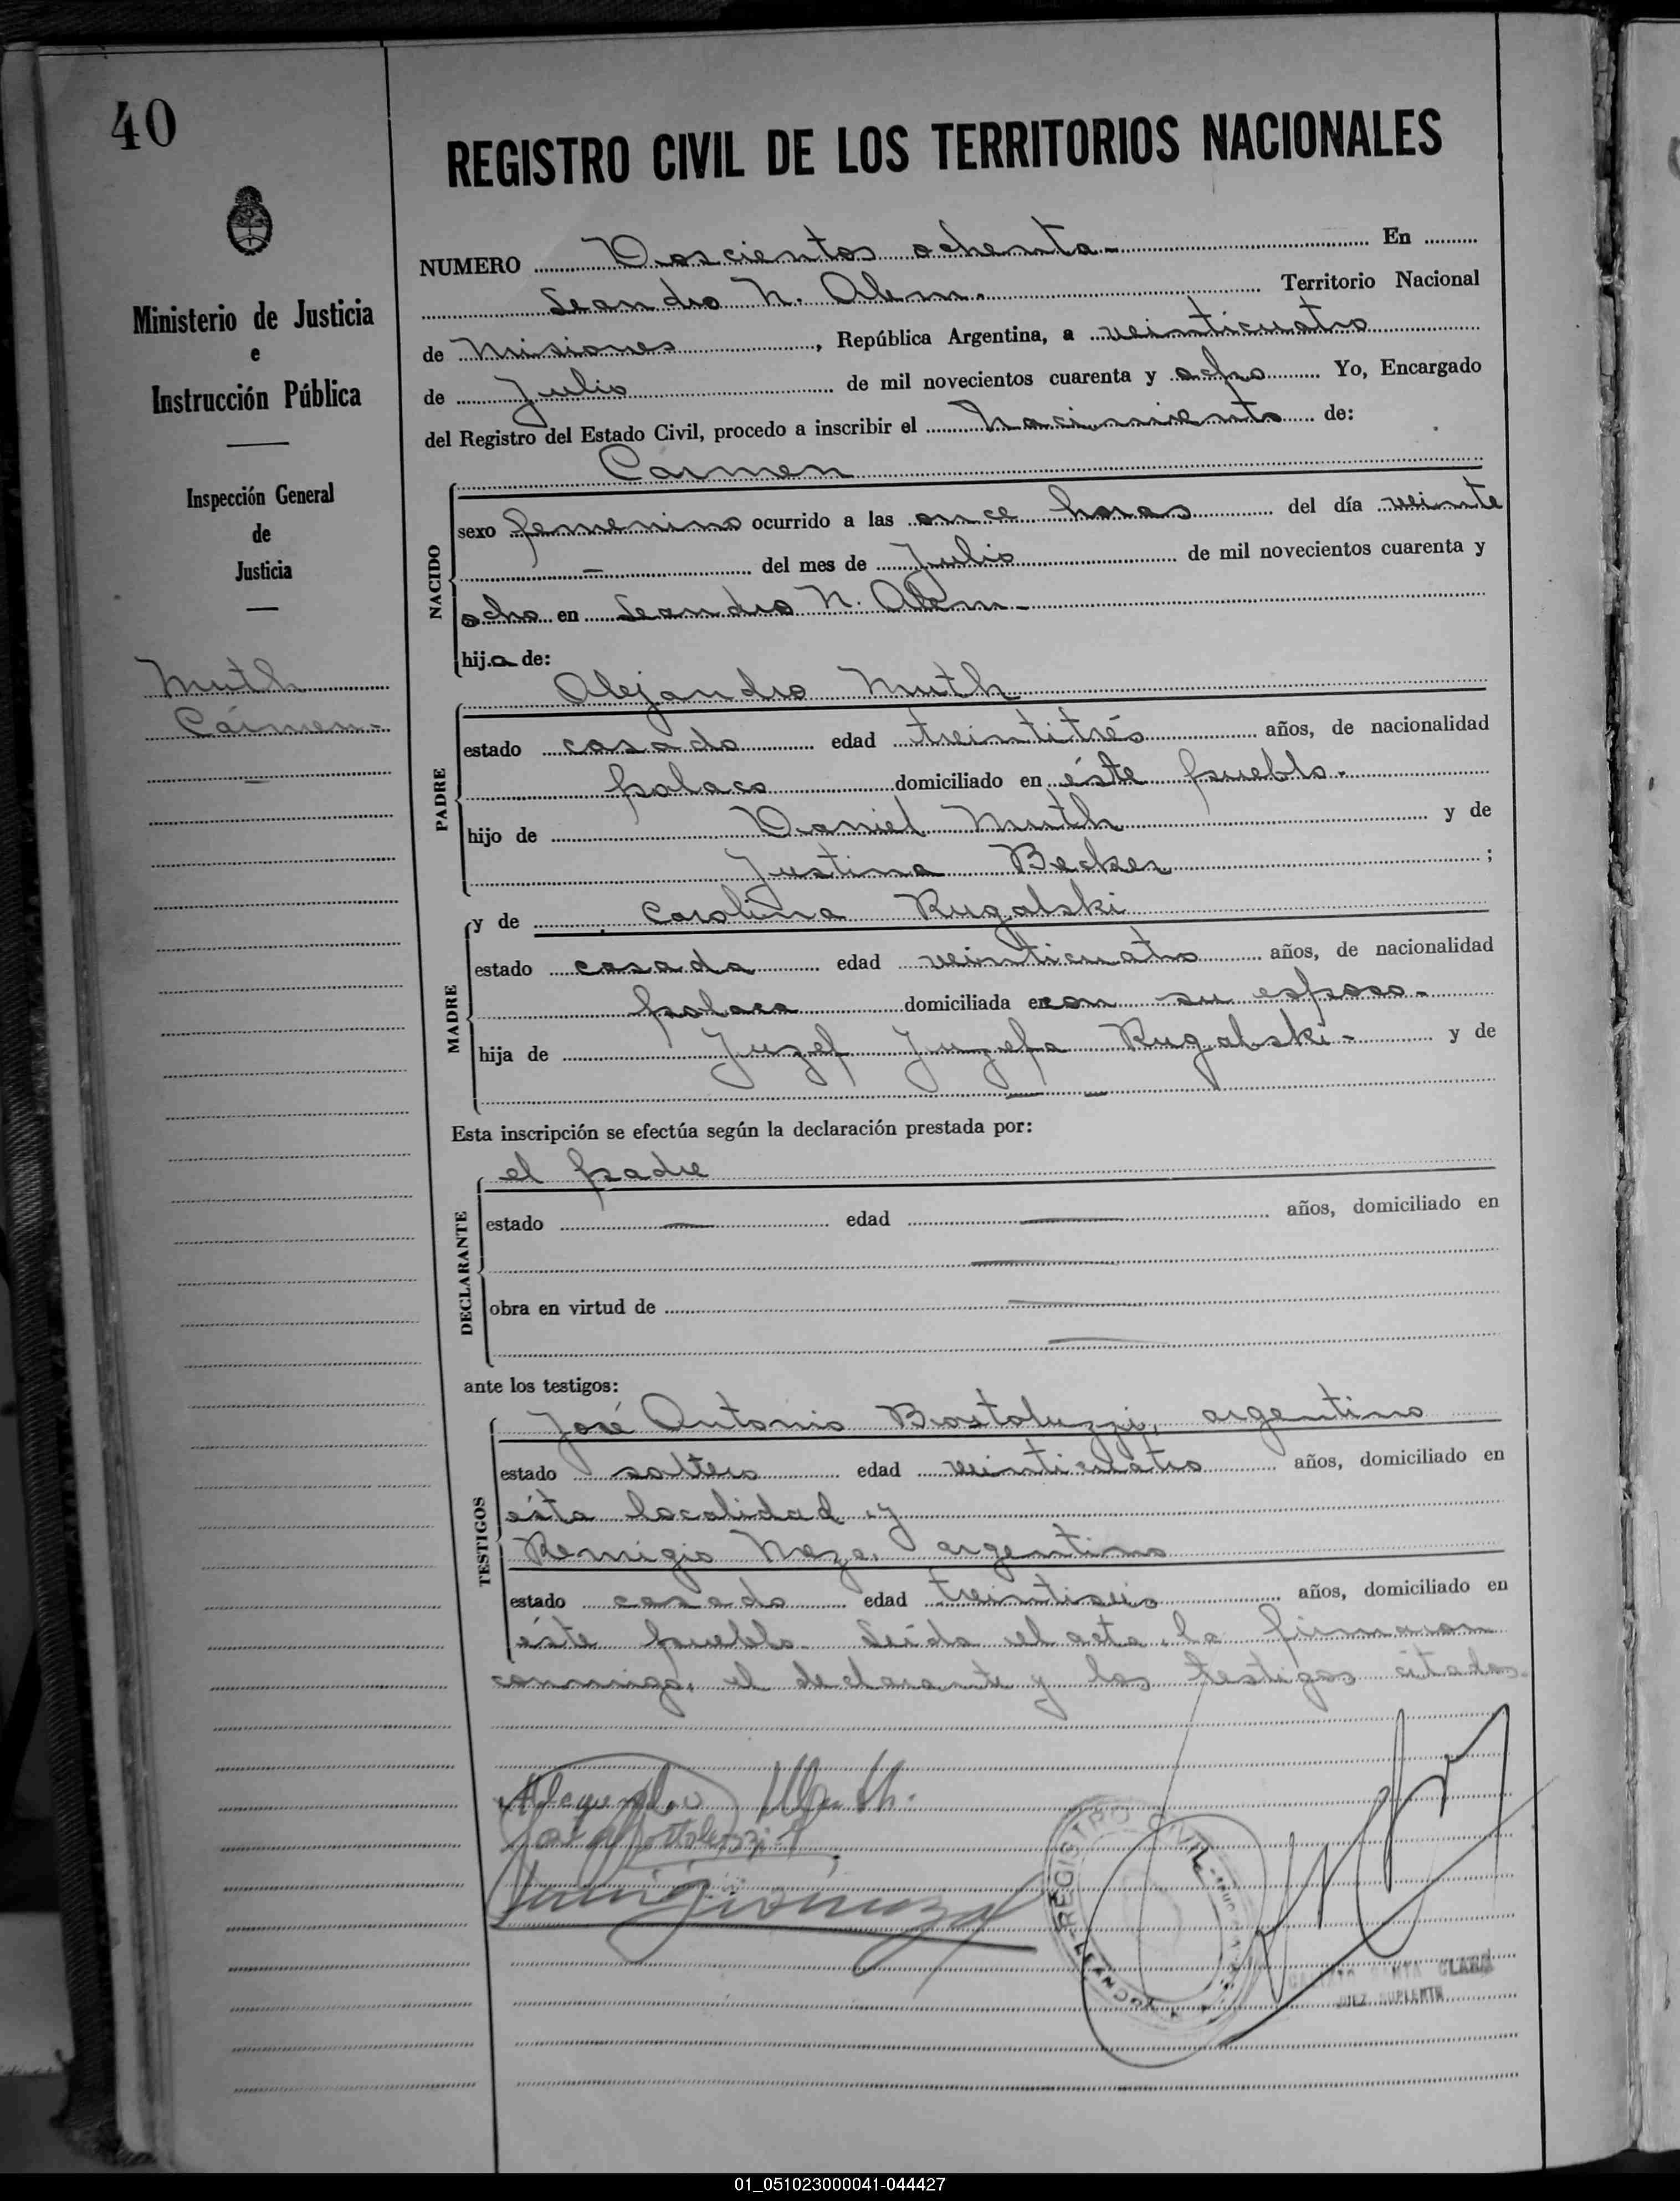 40
REGISTRO CIVIL DE LOS TERRITORIOS NACIONALES
Ministerio de Justicia
e
Instrucción Pública
Inspección General
de
Justicia
Muth
Cármen-
NUMERO Doscientos ochenta- En
Leandro N. Alem. Territorio Nacional
de Misiones, República Argentina, a veinticuatro
de Julio de mil novecientos cuarenta y ocho Yo, Encargado
del Registro del Estado Civil, procedo a inscribir el nacimiento de:
Carmen
NACIDO
sexo femenino ocurrido a las once horas del día veinte
— del mes de Julio de mil novecientos cuarenta y
ocho en Leandro N. Alem-
hija de:
Alejandro Muth
PADRE
estado casado edad treintitrés años, de nacionalidad
polaco domiciliado en éste pueblo.-
hijo de Daniel Muth y de
Justina Becker ;
y de Carolina Rugalski
MADRE
estado casada edad veinticuatro años, de nacionalidad
polaca domiciliada con su esposo-
hija de Juzef Juzefa Rugalski- y de
— —
Esta inscripción se efectúa según la declaración prestada por:
el padre
DECLARANTE
estado — edad — años, domiciliado en
—
obra en virtud de —
—
ante los testigos:
José Antonio Bortoluzzi, argentino
TESTIGOS
estado soltero edad veinticuatro años, domiciliado en
ésta localidad y
Remigio argentino
estado casado edad treintiseis años, domiciliado en
éste pueblo. Leída el acta, la firmaron
conmigo, el declarante y los testigos citados-
Alejandro Muth.
REGISTRO CIVIL
LEANDRO N.
SANTA CLARA
JUEZ SUPLENTE
01_051023000041-044427